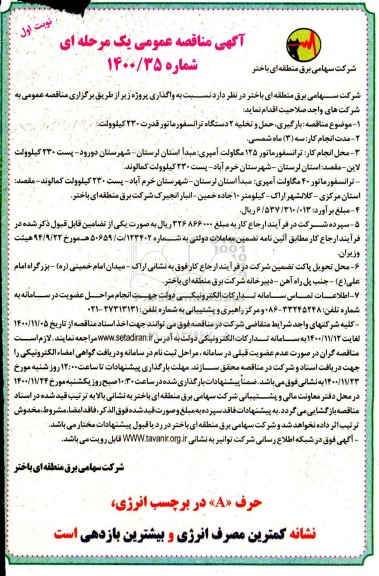 نوبت اول
آگهی مناقصه عمومی یک مرحله ای
شماره ۱۴۰۰/۳۵
شرکت سهامی برق منطقه ای باختر
شرکت ســـهامی برق منطقه ای باختر در نظر دارد نســبت به واگذاری پروژه زیر از طریق برگزاری مناقصه عمومی به
شرکت های واجد صلاحیت اقدام نماید:
۱-موضوع مناقصه: بارگیری، حمل و تخلیه ۲ دستگاه ترانسفورماتور قدرت ۲۳۰ کیلوولت.
۲-مدت انجام کار: سه (۳) ماه شمسی.
۳- محل انجام کار: ترانسفورماتور ۱۲۵ مگاولت آمپری: مبدأ استان لرستان-شهرستان دورود- پست ۲۳۰ کیلوولت
لاین-مقصد: استان لرستان- شهرستان خرم آباد- پست ۲۳۰ کیلوولت کمالوند.
- ترانسفورماتور ۴۰ مگاولت آمپری: مبدأ استان لرستان- شهرستان خرم آباد- پست ۲۳۰ کیلوولت کمالوند- مقصد:
استان مرکزی - کلانشهر اراک - کیلومتر ۱۰ جاده خمین -انبار انجیرک شرکت برق منطقه ای باختر.
۴- مبلغ برآورد: ۶/۵۳۷/۳۱۰/۰۱۳ ریال.
۵- سپرده شــرکت در فرآیند ارجاع کار به مبلغ ۳۲۶۸۶۶۰۰۰ ریال به صورت یکی از تضامین قابل قبول ذکر شده در
فرآیند ارجاع کار مطابق آئین نامه تضمین معاملات دولتی به شــماره ۱۲۳۴۰۲/ت/۵۰۶۵۹ هـ مورخ ۹۴/۹/۲۲ هیئت
وزیران.
۶- محل تحویل پاکت تضمین شرکت در فرآیند ارجاع کار فوق به نشانی اراک - میدان امام خمینی (ره) - بزرگراه امام
علی(ع) - جنب پل راه آهن - دبیرخانه شرکت برق منطقه ای باختر.
۷- اطلاعات تماس سامانه تــدارکات الکترونیکــی دولت جهــت انجام مراحــل عضویت در سامانه به
شماره تلفن: ۳۳۲۴۵۲۴۸-۰۸۶ و مرکز راهبری و پشتیبانی به شماره تلفن: ۲۷۳۱۳۱۳۱-۰۲۱
- کلیه شرکتهای واجد شرایط متقاضی شرکت در مناقصه فوق می توانند جهت اخذ اسناد مناقصه از تاریخ ۱۴۰۰/۱۱/۰۵
لغایت ۱۴۰۰/۱۱/۱۲ به سامانه تدارکات الکترونیکی دولت به آدرس www.setadiran.ir مراجعه نمایند. لازم اســت
مناقصه گران در صورت عدم عضویت قبلی در سامانه، مراحل ثبت نام در سامانه و دریافت گواهی امضاء الکترونیکی را
جهت دریافت اسناد و شرکت در مناقصه محقق سازند. مهلت بارگذاری پیشنهادات تا ساعت ۱۲:۰۰ روز شنبه مورخ
۱۴۰۰/۱۱/۲۳ به نشانی فوق می باشد. ضمناً پیشنهادات بارگذاری شده در ساعت ۱۰:۳۰ صبح روز یکشنبه مورخ ۱۴۰۰/۱۱/۲۴
در محل دفتر معاونت مالی و پشــتیبانی شرکت سهامی برق منطقه ای باختر به نشانی بالا به ترتیب قید شده در اسناد
مناقصه بازگشایی می گردد. به پیشنهادات فاقد سپرده به مبلغ و صورت قید شده فوق الذکر، فاقد امضاء، مشروط، مخدوش
ترتیب اثر داده نخواهد شد و شرکت سهامی برق منطقه ای باختر در رد یا قبول پیشنهادات مختار می باشد.
- آگهی فوق در شبکه اطلاع رسانی شرکت توانیر به نشانی WWW.tavanir.org.ir قابل رویت می باشد.
شرکت سهامی برق منطقه ای باختر
حرف «A» در برچسب انرژی،
نشانه کمترین مصرف انرژی و بیشترین بازدهی است